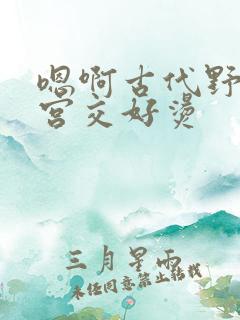 嗯啊古代野
宫交好烫
三月星雨
未经同意禁止转载